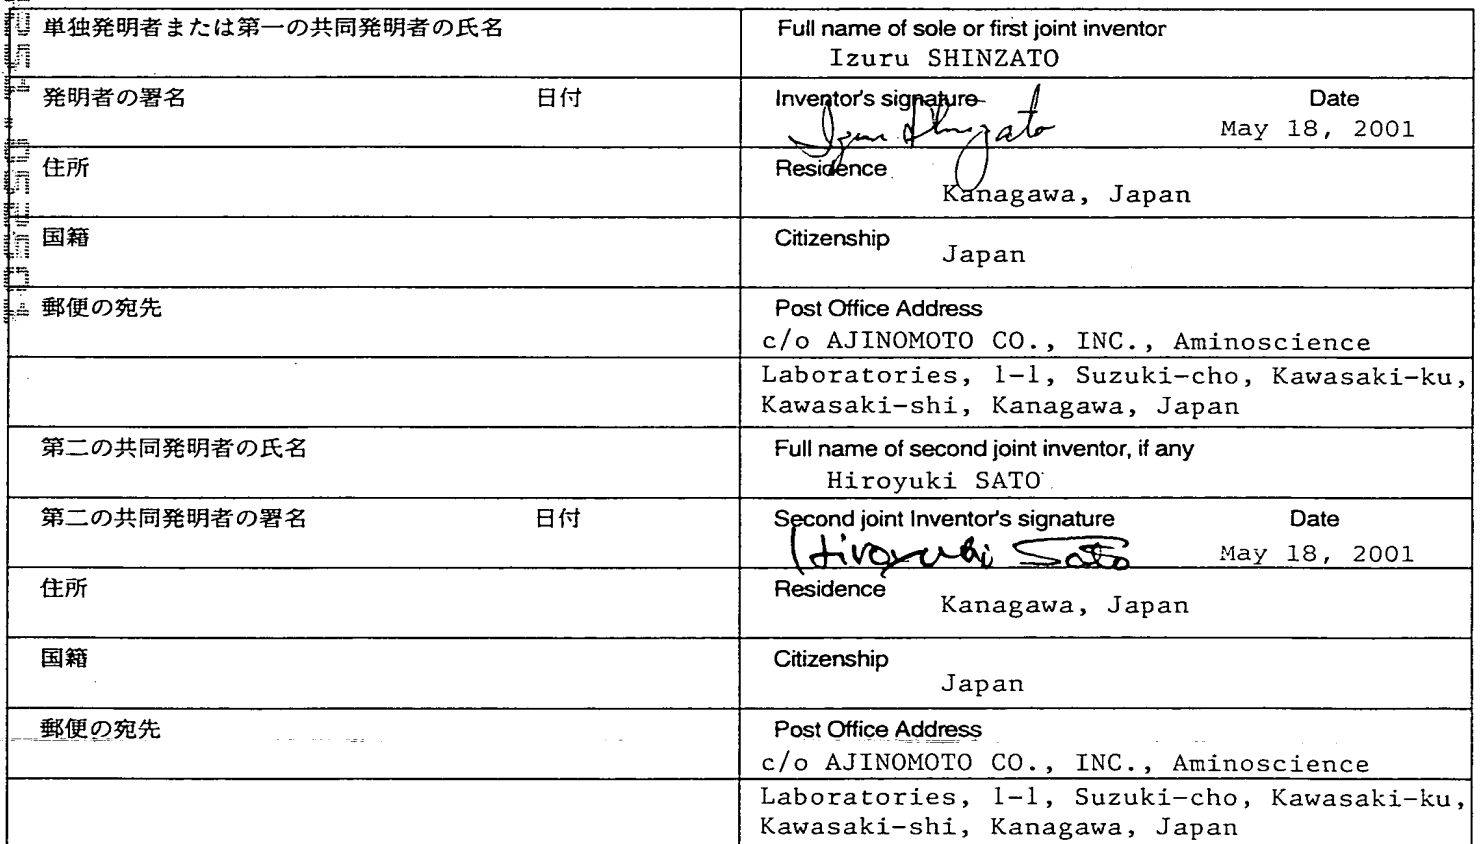 単独発明者または第一の共同発明者の氏名
Full name of sole or first joint inventor
Izuru SHINZATO
発明者の署名 日付
Inventor's signature Date
Izuru Shinzato May 18, 2001
住所
Residence
Kanagawa, Japan
国籍
Citizenship
Japan
郵便の宛先
Post Office Address
c/o AJINOMOTO CO., INC., Aminoscience
Laboratories, 1-1, Suzuki-cho, Kawasaki-ku,
Kawasaki-shi, Kanagawa, Japan
第二の共同発明者の氏名
Full name of second joint inventor, if any
Hiroyuki SATO
第二の共同発明者の署名 日付
Second joint Inventor's signature Date
Hiroyuki Sato May 18, 2001
住所
Residence
Kanagawa, Japan
国籍
Citizenship
Japan
郵便の宛先
Post Office Address
c/o AJINOMOTO CO., INC., Aminoscience
Laboratories, 1-1, Suzuki-cho, Kawasaki-ku,
Kawasaki-shi, Kanagawa, Japan